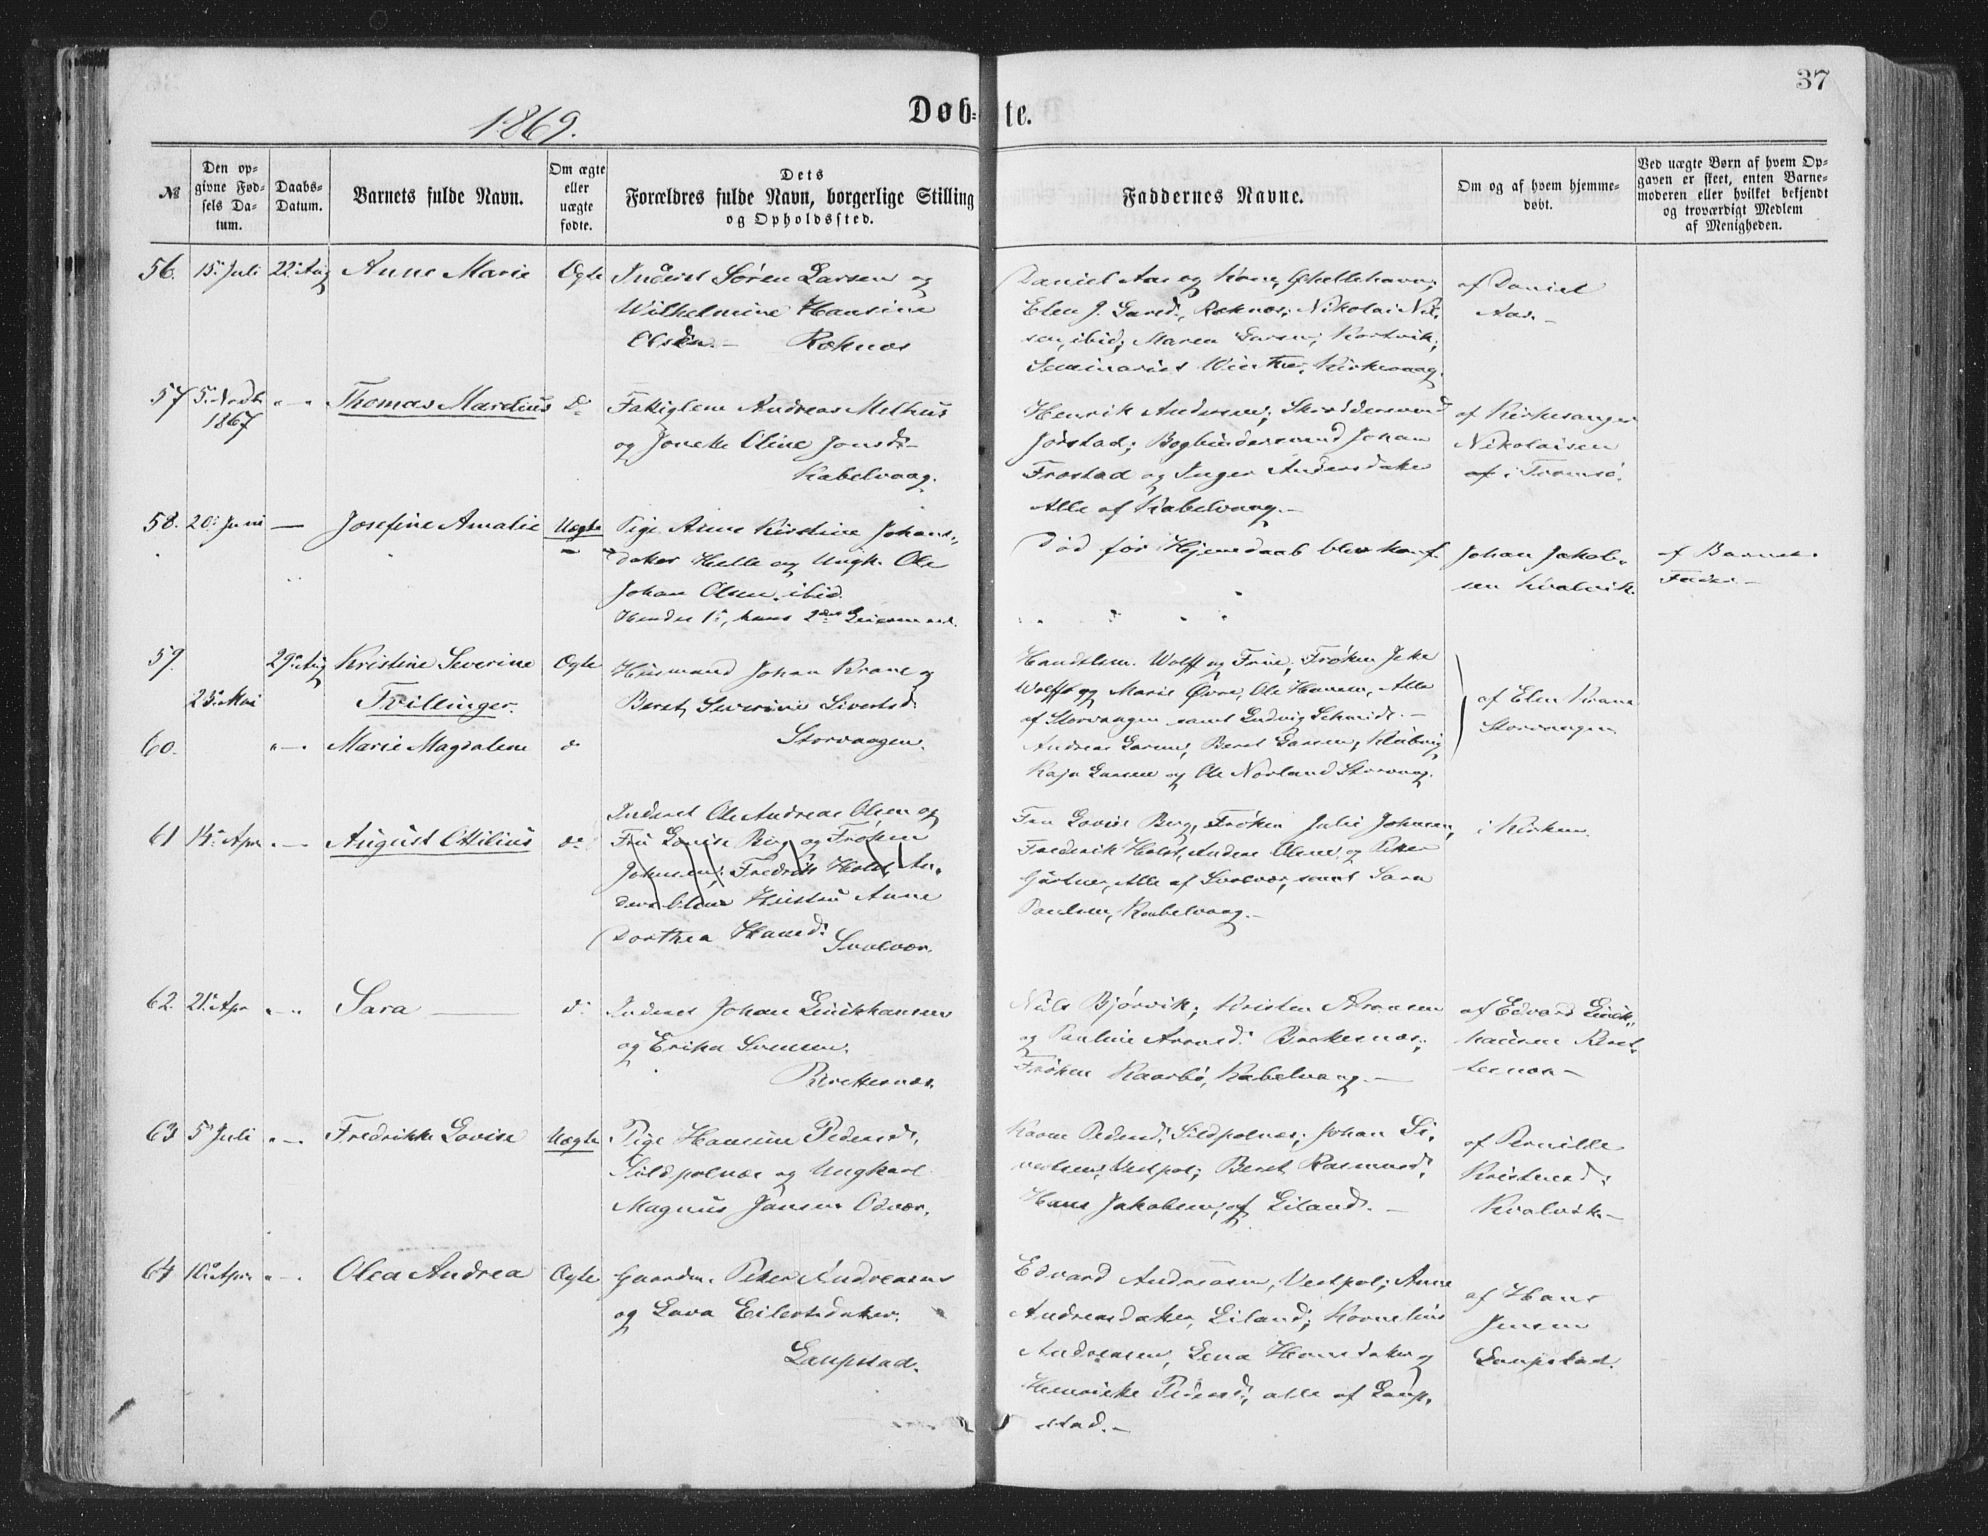 37
1869.
Døb- te.
№
Den op-
givne Fød-
sels Da-
tum.
Daabs-
Datum.
Barnets fulde Navn.
Om ægte
eller
uægte
fødte.
Dets
Forældres fulde Navn, borgerlige Stilling
og Opholdssted.
Faddernes Navne.
Om og af hvem hjemme-
døbt.
Ved uægte Børn af hvem Op-
gaven er skeet, enten Barne-
moderen eller hvilket bekjendt
og troværdigt Medlem
af Menigheden.
56. 15 Juli 22 Aug Anne Marie Ægte Inderst Søren Larsen og
Wilhelmine Hansine
Olsdr. - Røknæs
Daniel Aas og Kone,
Elen J. Larsd., Røknæs; Nikolai Nil-
sen, ibid; Maren Larsen,
Seminarist Winther, Kirkevaag.
af Daniel
Aas. -
57 5 Novbr
1867 " - " Thomas Mardius do
Andreas Melhus
og Oline Jonsdr -
Kabelvaag.
Henrik Andersen, Skræddersvend
Jørstad; Bogbindersvend Johan
Frostad og Inger Andersdatter
Alle af Kabelvaag. -
af Kirkesanger
Nikolaisen
i Tromsø.
58. 20 Juni - Josefine Amalie Uægte Pige Anne Kirstine Johans-
datter Helle og Ungk. Ole
Johan Olsen, ibid.
Hendes 1ste, hans 2det Leiermaal.
Død før Hjemdaab blev konf.
Johan Jakob-
sen Kvalvik.
af Barnets
Fader -
59. 29 Aug Kristine Severine Ægte Husmand Johan Krane og
25 Mai Tvillinger. Beret Severine Sivertsd.
60. " - " Marie Magdalene do Storvaagen.
Handelsm. Wolff og Frue, Frøken
Wolff og Marie Øvre, Ole Hansen, Alle
af Storvaagen samt Ludvig Schmidt. -
Andreas Larsen, Beret Larsen,
Kaja Larsen og Ole Norland Storvaag.
af Elen Krane
Storvaagen
61 14 Apr " - " August Ottilius do
Inderst Ole Andreas Olsen og
Fru Lovise Berg og Frøken
Johnsen; Fredrik Holst, An-
Hustru Anne
Dorthea Hansd. Svolvær.
Fru Lovise Berg, Frøken Julie Johnsen,
Frederik Holst, Anders Olsen og Peter
Gärtner, Alle af Svolvær, samt Sara
Paulsen, Kabelvaag. -
i Kirken.
62. 21 Apr " - " Sara do Inderst Johan Linikhausen
og Erika Svensen.
Brettesnæs.
Nils Bjørvik; Kristen Arensen
og Pauline Arensd. Brettesnæs;
Frøken Kaarbø, Kabelvaag. -
af Edvard Linik-
hausen Bret-
tesnæs -
63 5 Juli " - " Fredrikke Lovise Uægte Pige Hansine Pedersd.
Sildpolnæs og Ungkarl
Magnus Jansen Odvær.
Karen Pedersd. Sildpolnæs; Johan Si-
vertsen, Vestpol; Beret Rasmusd.
Hans Jakobsen, af Liland. -
af Pernille
Kristensd.
Kvalvik. -
64 10 Apr. " - " Olea Andrea Ægte Gaardm. Peter Andreasen
og Lava Eilertsdatter.
Laupstad.
Edvard Andreasen, Vestpol; Anne
Andreasdatter, Liland; Kornelius
Andreasen, Lena Hansdatter og
Henrikke Pedersd., alle af Laup-
stad. -
af Hans
Jensen
Laupstad.